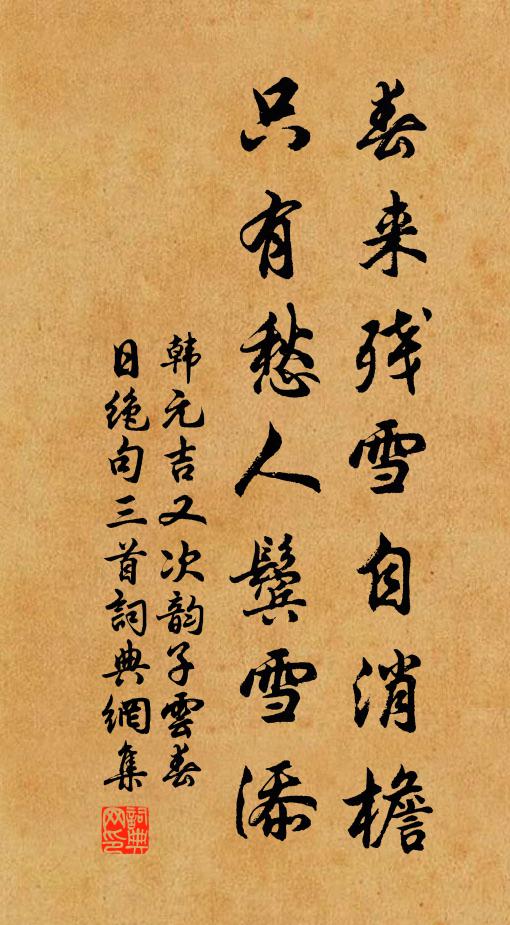 春来残雪自消檐
只有愁人鬓雪添
韩元吉又次韵子雲春
日绝句三首詞典網集
詞典网印